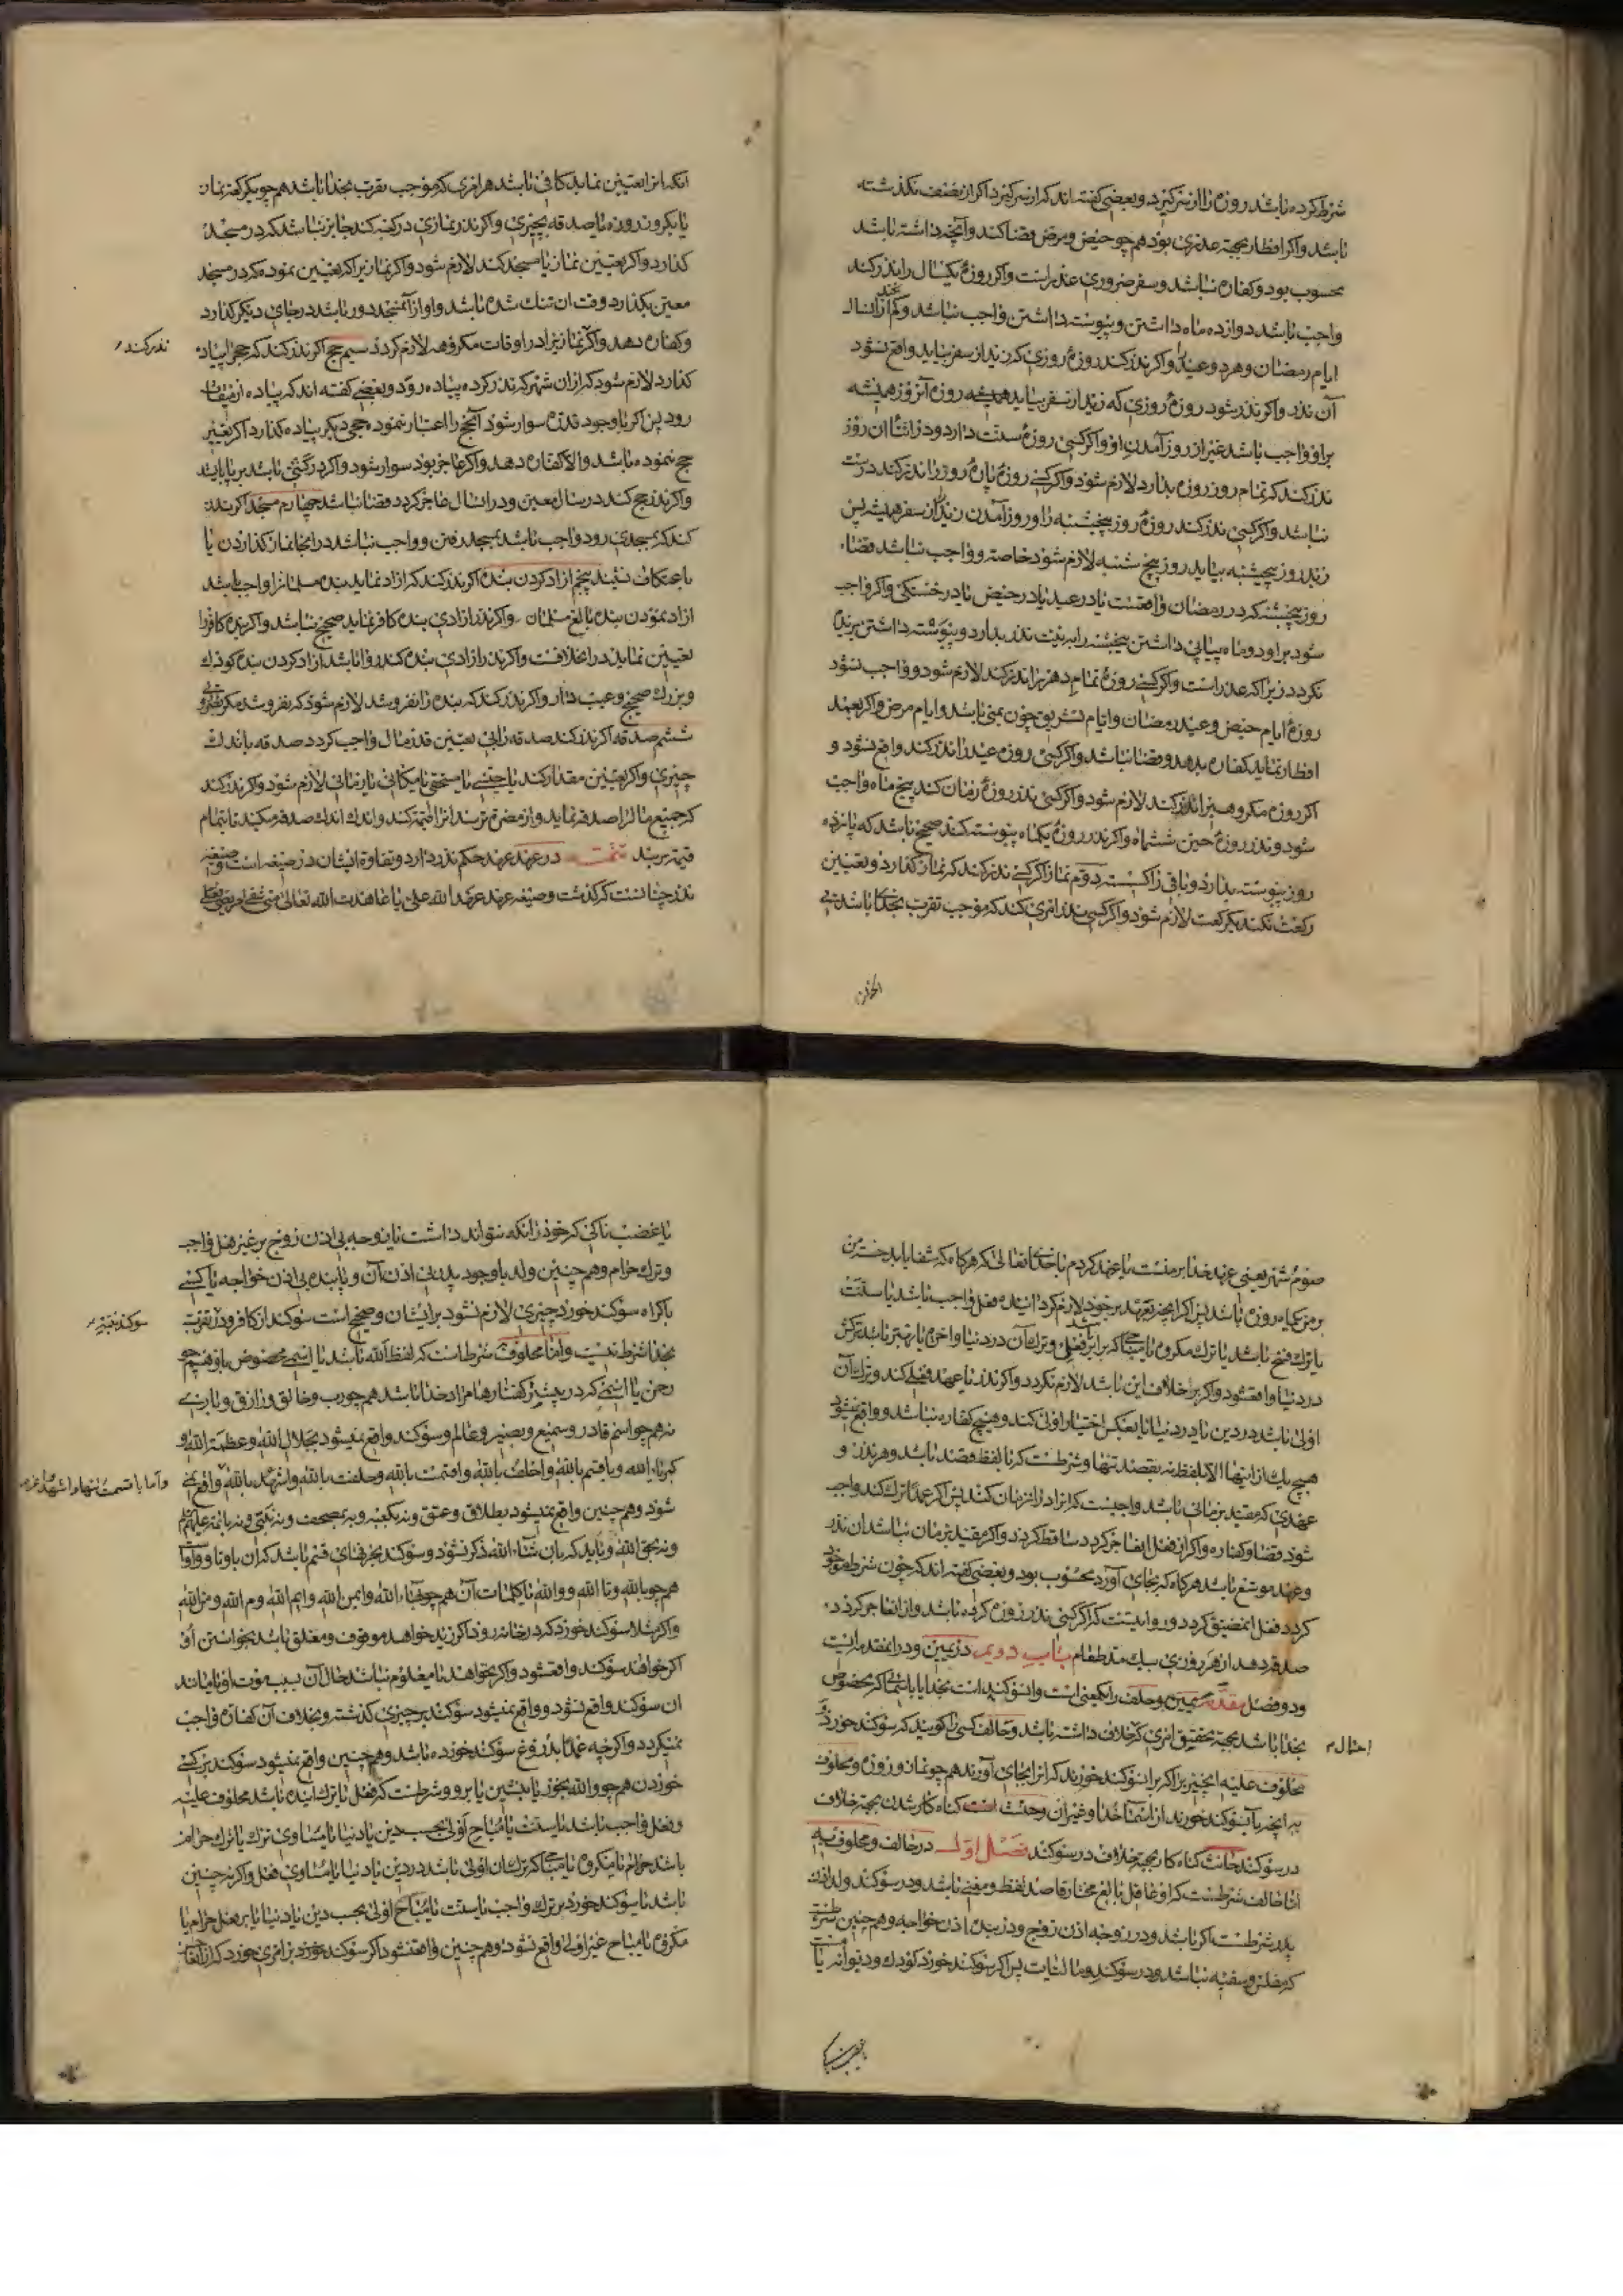 شرط کرده باشد روزه را از سر گیرد و بعضی گفته اند که از سر گیرد اگر از نصف نگذشته
باشد و اگر افطار بجهة عذری بود هم چو حیض و مرض قضا کند و آنچه داشته باشد
محسوب بود و کفاره نباشد و سفر ضروری عذر است و اگر روزهٔ یکسال را نذر کند
واجب باشد دوازده ماه داشتن و پیوسته داشتن واجب نباشد
ایام رمضان و هر دو عید و اگر نذر کند روزهٔ روزی که زید از سفر بیاید واقع نشود
آن نذر و اگر نذر شود روزهٔ روزی که زید از سفر بیاید همیشه روزه آنروز همیشه
براو واجب باشد غیر از روز آمدن او و اگر کسی روزهٔ سنت دارد و در اثنا ان روز
نذر کند که تمام روز روزه بدارد لازم شود و اگر کسی روزهٔ پارهٔ روز را نذر کند درست
نباشد و اگر کسی نذر کند روزهٔ روز پنجشنبه را و روز آمدن زید از سفر همیشه پس
زید روز پنجشنبه بیاید روز پنج شنبه لازم شود خاصة و واجب نباشد قضاء
روز پنجشنبه که در رمضان واقعست یا در عید یا در حیض یا در خستگی و اگر واجب
شود براو دو ماه پیاپی داشتن پنجشنبه را به نیت نذر بدارد و پیوسته داشتن بریده
نگردد زیرا که عذر است و اگر کسی روزهٔ تمام دهر را نذر کند لازم شود و واجب نشود
روزهٔ ایام حیض و عید رمضان و ایام تشریق چون بمنی باشد و ایام مرض و اگر بعمد
افطار نماید کفاره بدهد و قضا نباشد و اگر کسی روزه عید را نذر کند واقع نشود و
اگر روزه مکروهیرا نذر کند لازم شود و اگر کسی نذر روزهٔ زمان کند پنج ماه واجب
شود و نذر روزهٔ حین ششماه و اگر نذر روزهٔ یکماه پیوسته کند صحیح باشد که پانزده
روز پیوسته بدارد و باقی را گسسته دوم نماز اگر کسی نذر کند که نماز گذارد و تعیین
رکعت نکند یکرکعت لازم شود و اگر کسی نذر امری کند که موجب تقرب بخدا باشد بی
آنکه انرا تعیین نماید کافی باشد هر امری که موجب تقرب بخدا باشد هم چو یکرکعة نماز
یا یکروز روزه یا صدقه بچیزی و اگر نذر نمازی در کعبه کند جایز نباشد که در مسجد
گذارد و اگر تعیین نماز یا مسجد کند لازم شود و اگر نماز را که تعیین نموده که در مسجد
معین بگذارد وقت ان تنک شده باشد و او از آنمسجد دور باشد در جای دیگر گذارد
نذر کند
و کفاره دهد و اگر نماز را در اوقات مکروهه لازم گردد سیم حج اگر نذر کند که حج را پیاده
گذارد لازم شود که از ان شهر که نذر کرده پیاده رود و بعضی گفته اند که پیاده از میقات
رود پس اگر با وجود قدرة سوار شود آنحج را اعتبار ننموده حجی دیگر پیاده گذارد اگر تعیین
حج ننموده باشد و الا کفاره دهد و اگر عاجز بود سوار شود و اگر در کشتی باشد بر پا باید
و اگر نذر حج کند در سال معین و در انسال عاجز گردد قضا نباشد چهارم مسجد اگر نذر
کند که بمسجدی رود واجب باشد بمسجد رفتن و واجب نباشد در انجا نماز گذاردن یا
باعتکاف نشیند پنجم ازاد کردن بنده اگر نذر کند که ازاد نماید بنده مسلمانرا واجب باشد
ازاد نمودن بنده بالغ مسلمان و اگر نذر ازادی بنده کافر نماید صحیح نباشد و اگر بنده کافر را
تعیین نماید در اخلافست و اگر نذر ازادی بنده کند روا باشد ازاد کردن بنده کودک
و بزرک صحیح و عیب دار و اگر نذر کند که بنده را نفروشد لازم شود که نفروشد مگر
ششم صدقه اگر نذر کند صدقه را بی تعیین قدر مال واجب گردد صدقه باندک
چیزی و اگر تعیین مقدار کند یا جنسی یا مستحقی یا مکانی یا زمانی لازم شود و اگر نذر کند
که جمیع مالرا صدقه نماید و از مضرة ترسد انرا قیمة کند و اندک اندک صدقه میکند تا بتمام
قیمة برسد تتمت در عهد عهد حکم نذر دارد و تفاوة ایشان در صیغه است و صیغه
نذر چنانست که گذشت و صیغه عهد عهد الله علی یا عاهدت الله تعالی متی شفی مریضی فعلی
صوم شهر یعنی عهد خدا بر منست یا عهد کردم با خدای تعالی که هرگاه که شفا یابد خسته من
بر من یکماه روزه باشد پس اگر انچیز بعهد بر خود لازم گردانیده فعل واجب باشد یا سنت
یا ترک قبیح باشد یا ترک مکروه یا مباحی که برابر باشد فعل و ترک آن در دنیا و اخرة یا بهتر باشد ترکش
در دنیا واقعشود و اگر بر خلاف این باشد لازم نگردد و اگر نذر یا عهد فعلی کند و ترک آن
اولی باشد در دین یا در دنیا یا بعکس اختیار اولی کند و هیچ کفاره نباشد و واقع نشود
هیچ یک از اینها الا بلفظ نه بقصد تنها و شرطست که با لفظ قصد باشد و هر نذر و
عهدی که مقید بزمانی باشد واجبست که انرا در انزمان کند پس اگر عمدا ترک کند واجب
شود قضا و کفاره و اگر از ان فعل ایفا عاجز گردد ساقط گردد و اگر مقید بزمان نباشد ان نذر
و عهد موسع باشد هرگاه که بجای آورد محسوب بود و بعضی گفته اند که چون شرط موجود
گردد فعل انمضیق گردد و روایتست که اگر کسی نذر روزه کرده باشد و از انعاجز گردد
صدقه دهد از هر روزی بیک مد طعام باب دویم در یمین و در انمقدمه ایست
و دو فصل مقدمه یمین و حلف را یکمعنی است و آن سوکند است بخدا یا باسمائی که مخصوص
بخدا باشد بجهة تحقیق امری که احتمال خلاف داشته باشد و حالف کسی را گویند که سوکند خورد و
محلوف علیه انچیز را که بر ان سوکند خورند که انرا بجای آورند هم چو نماز و روزه و محلوف
به انچه بآن سوکند خورند از اسماء خدا و غیر ان و حنث است گناه کار شدن بجهة خلاف
در سوکند حانث گناه کار بجهة خلاف در سوکند فصل اول در حالف و محلوف به
اما حالف شرطست که او عاقل بالغ مختار قاصد لفظ و معنی باشد و در سوکند ولد اذن
پدر شرطست اگر باشد و در زوجه اذن زوج و در بنده اذن خواجه و هم چنین شرطست
که مفلس و سفیه نباشد و در سوکند و مالیات پس اگر سوکند خورد کودک و دیوانه یا
یا غضب ناکی که خود را نگه نتواند داشت یا زوجه بی اذن زوج بر غیر فعل واجب
و ترک حرام و هم چنین ولد با وجود پدر بی اذن آن و یا بنده بی اذن خواجه یا کسی
باکراه سوکند خورد چیزی لازم نشود بر ایشان و صحیح است سوکند از کافر و تقرب
بخدا شرط نیست و اما محلوف به شرطست که لفظ الله باشد یا اسمی مخصوص باو هم چو
رحمن یا اسمی که در بیشتر گفتارها مراد خدا باشد هم چو رب و خالق و رازق و باری
نه هم چو اسم قادر و سمیع و بصیر و عالم و سوکند واقع نمیشود بجلال الله و عظمة الله و
کبریاء الله و باقسم بالله و احلف بالله و اقسمت بالله و حلفت بالله و اشهد بالله و واقع نمی
شود و هم چنین واقع نمیشود بطلاق و عتق و نه بکعبه و نه بمصحف و نه بنبی و نه بائمه علیهم
و نه بحق الله و باید که بان شاء الله ذکر نشود و سوکند بحرفهای قسم باشد که ان با و تا و واو
هم چو بالله و تا الله و والله یا کلمات آن هم چو هاء الله و ایمن الله و ایم الله و م الله و من الله
و اگر مثلا سوکند خورد که در خانه رود اگر زید خواهد موقوف و معلق باشد بخواستن او
اگر خواهد سوکند واقعشود و اگر نخواهد یا معلوم نباشد حال آن بسبب موت او یا مانند
ان سوکند واقع نشود و واقع نمیشود سوکند بر چیزی گذشته و بخلاف آن کفاره واجب
نمیگردد و اگر چه عمدا بدروغ سوکند خورده باشد و هم چنین واقع نمیشود سوکند بر کسی
خوردن هم چو والله بخور یا بنشین یا برو و شرطست که فعل یا ترک اینده باشد محلوف علیه
و فعل واجب باشد یا سنت یا مباح اولی بحسب دین یا دنیا یا مساوی ترک یا ترک حرام
باشد حرام یا مکروه یا مباحی که ترک ان اولی باشد در دین یا دنیا یا مساوی فعل و اگر نه چنین
باشد یا سوکند خورد بر ترک واجب یا سنت یا مباح اولی بحسب دین یا دنیا یا بر فعل حرام یا
مکروه یا مباح غیر اولی واقع نشود و هم چنین واقعنشود اگر سوکند خورد بر امری